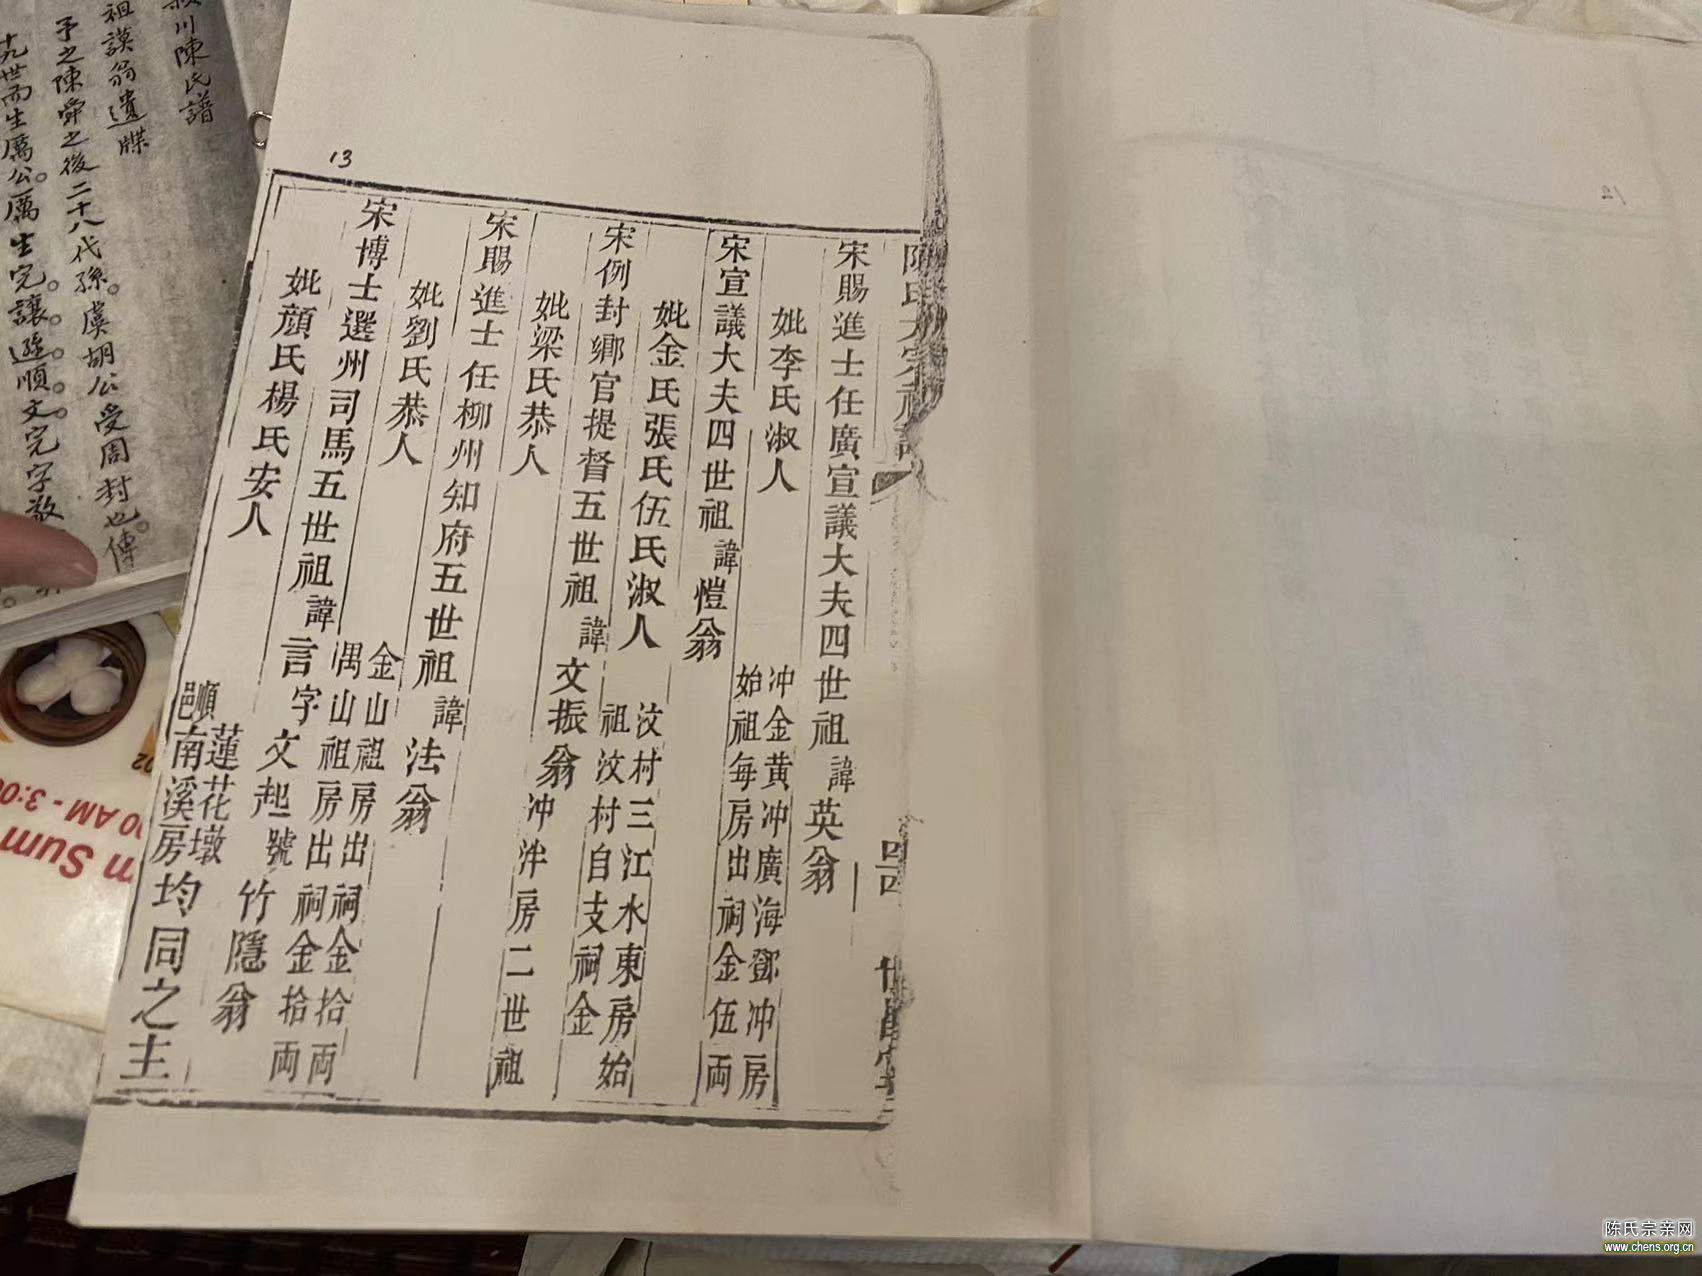 13
12
陳氏大宗祠譜
四
世昌堂
宋賜進士任廣宣議大夫四世祖諱英翁
妣李氏淑人
冲金黄冲廣海鄧冲房
始祖每房出祠金伍両
宋宣議大夫四世祖諱愷翁
妣金氏張氏伍氏淑人
汶村三江水東房始
祖汶村自支祠金
宋例封鄉官提督五世祖諱文振翁
妣梁氏恭人
冲泮房二世祖
宋賜進士任柳州知府五世祖諱法翁
妣劉氏恭人
金山祖房出祠金拾両
隅山祖房出祠金拾両
宋博士選州司馬五世祖諱言字文起號竹隱翁
妣顔氏楊氏安人
順邑
蓮花墩
南溪房
均同之主
川陳氏譜
祖謨翁遺牒
予之陳舜之後二十八代孫。虞胡公受周封也。傳
十九世而生厲公。厲生完。讓遜順文。完字敬
02
00 AM - 3:00
m Sum
陈氏宗亲网
www.chens.org.cn